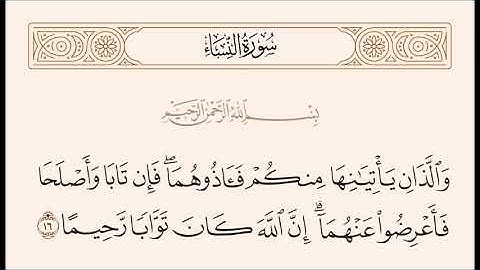 سُورَةُ النِّسَاءِ
بِسْمِ اللَّهِ الرَّحْمَٰنِ الرَّحِيمِ
وَٱلَّذَانِ يَأْتِيَـٰنِهَا مِنكُمْ فَـَٔاذُوهُمَا ۖ فَإِن تَابَا وَأَصْلَحَا
فَأَعْرِضُوا۟ عَنْهُمَآ ۗ إِنَّ ٱللَّهَ كَانَ تَوَّابًا رَّحِيمًا ١٦